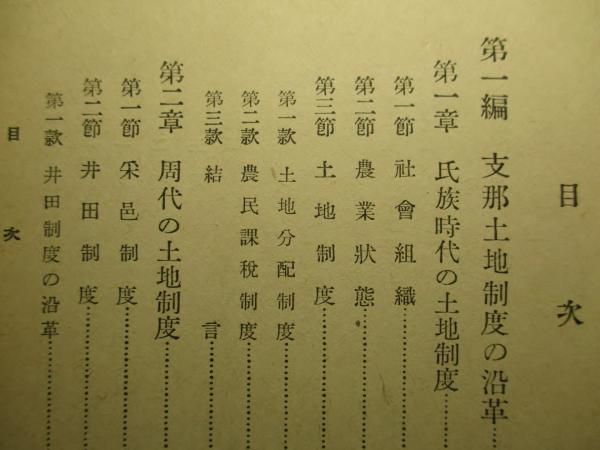 目次
第一編 支那土地制度の沿革
第一章 氏族時代の土地制度
第一節 社會組織
第二節 農業狀態
第三節 土地制度
第一款 土地分配制度
第二款 農民課稅制度
第三款 結言
第二章 周代の土地制度
第一節 采邑制度
第二節 井田制度
第一款 井田制度の沿革
目次